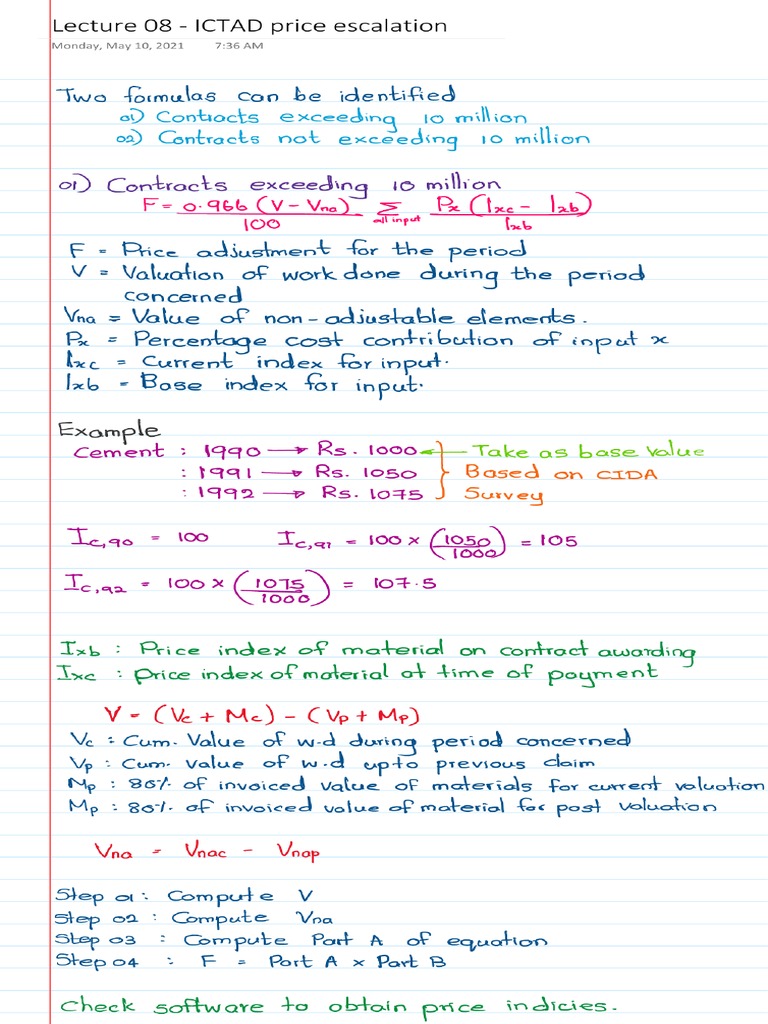 Lecture 08 - ICTAD price escalation
Monday, May 10, 2021 7:36 AM
Two formulas can be identified
01) Contracts exceeding 10 million
02) Contracts not exceeding 10 million
01) Contracts exceeding 10 million
F = 0.966 (V - Vna) / 100 Σ all input Px (Ixc - Ixb) / Ixb
F = Price adjustment for the period
V = Valuation of work done during the period
concerned
Vna = Value of non-adjustable elements.
Px = Percentage cost contribution of input x
Ixc = Current index for input.
Ixb = Base index for input.
Example
Cement : 1990 → Rs. 1000 ← Take as base value
: 1991 → Rs. 1050 } Based on CIDA
: 1992 → Rs. 1075 Survey
Ic,90 = 100 Ic,91 = 100 × (1050/1000) = 105
Ic,92 = 100 × (1075/1000) = 107.5
Ixb : Price index of material on contract awarding
Ixc : price index of material at time of payment
V = (Vc + Mc) - (Vp + Mp)
Vc : Cum. Value of w.d during period concerned
Vp : Cum. value of w.d upto previous claim
Mp : 80% of invoiced value of materials for current valuation
Mp : 80% of invoiced value of material for post valuation
Vna = Vnac - Vnap
Step 01 : Compute V
Step 02 : Compute Vna
Step 03 : Compute Part A of equation
Step 04 : F = Part A x Part B
Check software to obtain price indicies.